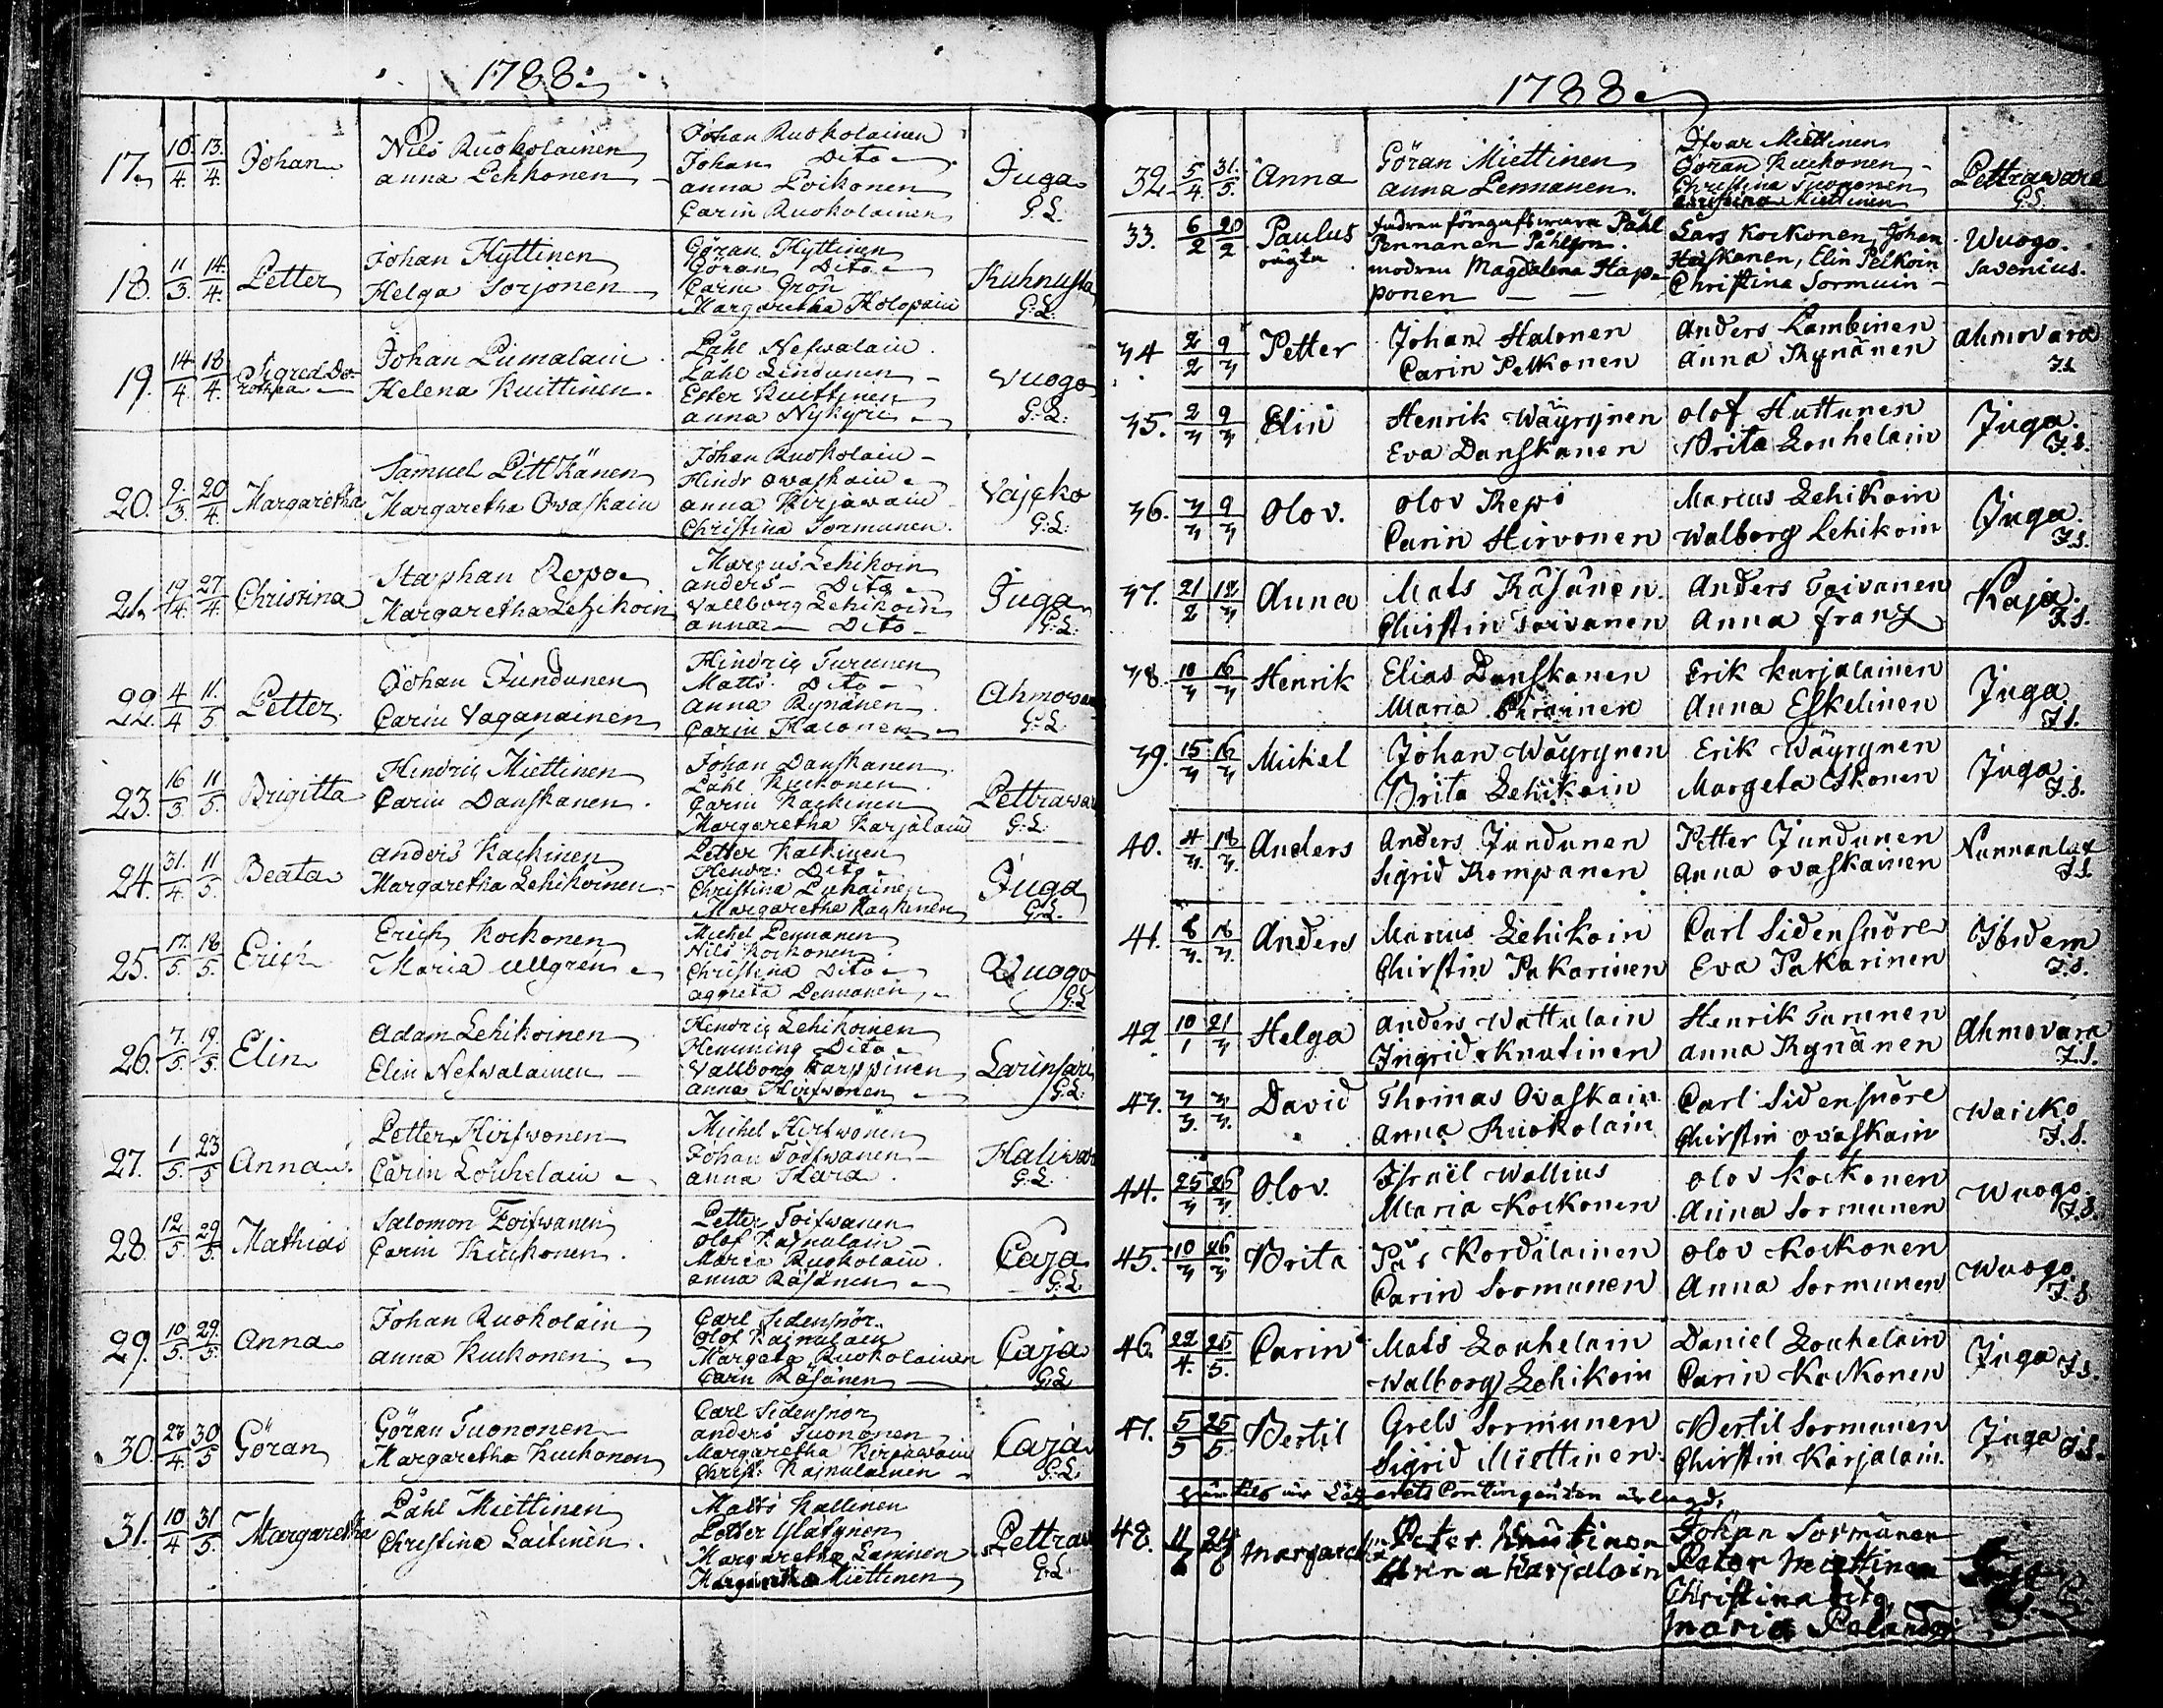 1788.
17. 10/4. 13./4. Johan
Nils Ruokolainen
Anna Lehkonen
Johan Ruokolainen
Johan Dito
Anna Loikonen
Carin Ruokolainen
Juga
G:L.
18. 11/3. 14./4. Petter
Johan Hyttinen
Helga Sorjonen
Göran Hyttinen
Göran Dito
Carin Grön
Margaretha Holopain
Kuhnusta
G:L:
19. 14/4 18/4. Sigred Do-
rothea
Johan Piimalain
Helena Kuittinen.
Påhl Nefwalain
Påhl Lindunen
Ester Kuittinen
Anna Nykyri
Vuogo
G:L:
20. 9/3. 20/4. Margaretha
Samuel Pittkänen
Margaretha Ovaskain
Johan Ruokolain
Hindr Ovaskain
Anna Kirjavain
Christina Sormunen.
Vajsko
G:L:
21. 19/4. 27/4. Christina
Staphan Repo
Margaretha Lehikoin
Marcus Lehikoin
Anders Dito
Vallborg Lehikoin
Anna Dito
Juga
G:L:
22. 4/4 11./5 Petter.
Johan Jundunen
Carin Vaganainen
Hindric Turunen
Matts Dito
Anna Rynänen
Carin Halonen
Ahmovar
G:L:
23. 16/3. 11/5. Brigitta
Hindric Miettinen
Carin Danskanen.
Johan Danskanen
Påhl Kuckonen
Carin Kackinen
Margaretha Karjalain
Pettrava
G:L:
24. 31./4 11/5. Beata
Anders Kackinen
Margaretha Lehikoinen
Petter Kackinen
Hendr: Dito
Christina Puhainen
Margaretha Kackinen
Juga
G:L.
25. 17./5. 18/5. Erich
Erich Kockonen
Maria Ullgren
Michel Pennanen
Nils Kockonen
Christina Dito
Agneta Pennanen
Wuogo
G:L
26. 7./5. 19./5. Elin
Adam Lehikoinen
Elin Nefwalainen
Hindric Lehikoinen
Hemming Dito
Vallborg Karppinen
Anna Hirfwonen
Larinsari
G:L:
27. 1/5. 23/5 Anna
Petter Hirfwonen
Carin Louhelain
Michel Hirfwonen
Johan Toifwanen
Anna Hara
Halivar
G:L.
28. 12/5. 29/5. Mathias
Salomon Toifwanen
Carin Kuckonen.
Petter Toifwanen
Olof Kajnulain
Maria Ruokolain
Anna Räsänen
Caja
G:L
29. 10/5. 29/5. Anna
Johan Ruokolain
Anna Kuckonen
Carl Sidensnör
Olof Kajnulain
Margeta Ruokolainen
Carin Räsänen
Caja
G:L
30. 23/4. 30/5 Göran
Göran Tuononen
Margaretha Kuckonen
Carl Sidensnör
Anders Tuononen
Margaretha Kirjawain
Christ: Kajnulainen
Caja
G:L.
31. 10/4 31/5. Margaretha
Påhl Miettinen
Christina Laitinen.
Matts Kallinen
Petter Glasynen
Margaretha Laminen
Margaretha Miettinen
Pettrav
G:L
1788.
32. 5/4. 31./5. Anna
Göran Miettinen
Anna Pennanen.
Ifvar Miettinen
Göran Kuckonen
Christina Tuononen
Christina Miettinen
Pettrawara
G:L.
33. 6/2 20/2 Paulus
oägta
fadren föregafs wara Påhl
Pennanen Påhlson.
modren Magdalena Hap-
ponen
Lars Kockonen, Johan
Haskanen, Elin Pelkoin
Christina Sormuin
Wuogo.
Savenius.
34 2/2 9/3 Petter
Johan Halonen
Carin Pelkonen
Anders Lambinen
Anna Rynänen
Ahmovara
J.S.
35. 2/3 9/3 Elin
Henrik Wäyrynen
Eva Danskanen
Olof Huttunen
Brita Louhelain
Juga.
J.S.
36. 3/3 9/3 Olov.
Olov Repo
Carin Hirvonen
Marcus Lehikoin
Walborg Lehikoin
Juga.
J.S.
37. 21/2 12/3 Anna
Mats Räsänen.
Chirstin Toivanen
Anders Toivanen
Anna Frantz
Kaja.
J.S.
38. 10/3 16/3 Henrik
Elias Danskanen
Maria Piirainen
Erik Karjalainen
Anna Eskelinen
Juga
J.S.
39. 15/3 16/3 Mickel
Johan Wäyrynen
Brita Lehikoin
Erik Wäyrynen
Margeta Iskonen
Juga.
J.S.
40. 4/3. 18/3. Anders
Anders Jundunen
Sigrid Kompanen
Petter Jundunen
Anna Ovaskainen
Nunnanlax
J.S.
41. 8/3. 18/3. Anders
Marcus Lehikoin
Chirstin Pakarinen
Carl Sidensnöre
Eva Pakarinen
Ibidem
J.S.
42. 10/1 21/3 Helga
Anders Wattulain
Ingrid Knutinen
Henrik Turunen
Anna Rynänen
Ahmovara
J.S.
43. 3/3. 3/3. David
Thomas Ovaskain
Anna Ruokolain
Carl Sidensnöre
Chirstin Ovaskain
Waicko
J.S.
44. 25/3 26/3. Olov.
Israël Wallius
Maria Kockonen
Olov Kockonen
Anna Sormunen
Wuogo.
J.S.
45. 10/3 26/3 Brita
Pål Kordilainen
Carin Sormunen
Olov Kockonen
Anna Sormunen
Wuogo.
J.S
46. 22/4. 25/5. Carin
Mats Louhelain
Walborg Lehikoin
Daniel Louhelain
Carin Kockonen
Juga J.S.
47. 5/5 25/5. Bertil
Grels Sormunen
Sigrid Miettinen.
Bertil Sormunen
Chirstin Karjalain.
Juga J.S.
48. Margareta
Peter Knutinen
Anna Karjalain
Johan Sormunen
Peter Miettinen
Christina dito,
Maria Palander